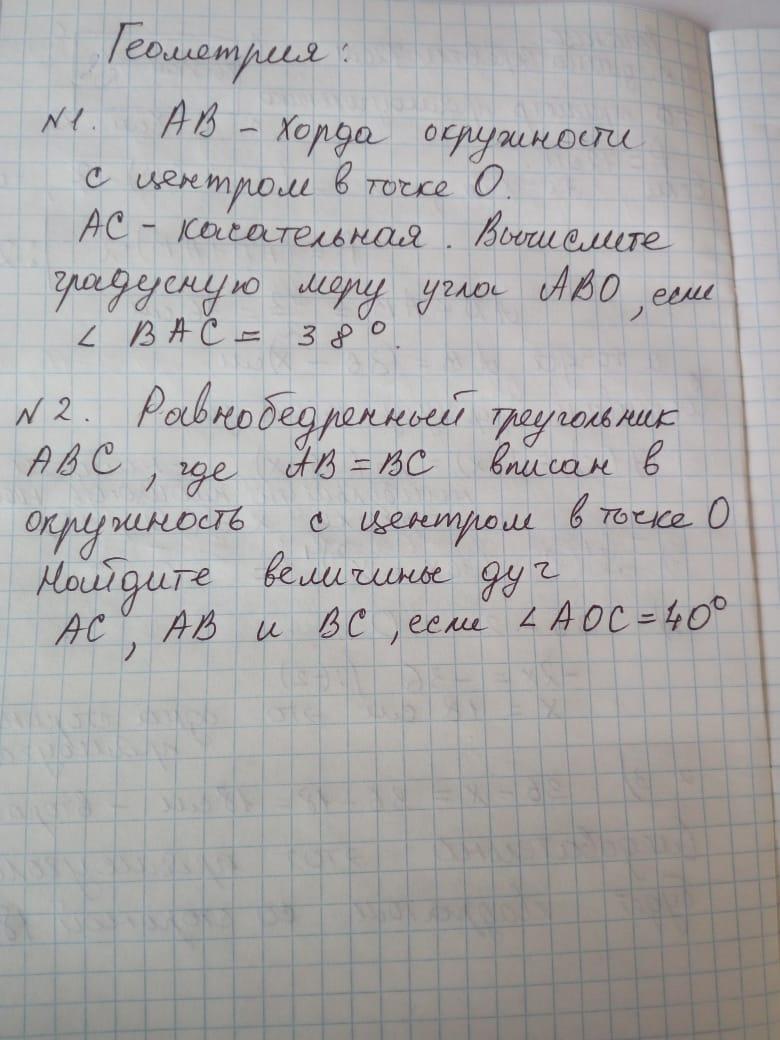 Геометрия:
N1. AB – хорда окружности
с центром в точке O.
AC – касательная. Вычислите
градусную меру угла ABO, если
∠ BAC = 38°.
N2. Равнобедренный треугольник
ABC, где AB = BC вписан в
окружность с центром в точке O
Найдите величины дуг
AC, AB и BC, если ∠AOC = 40°